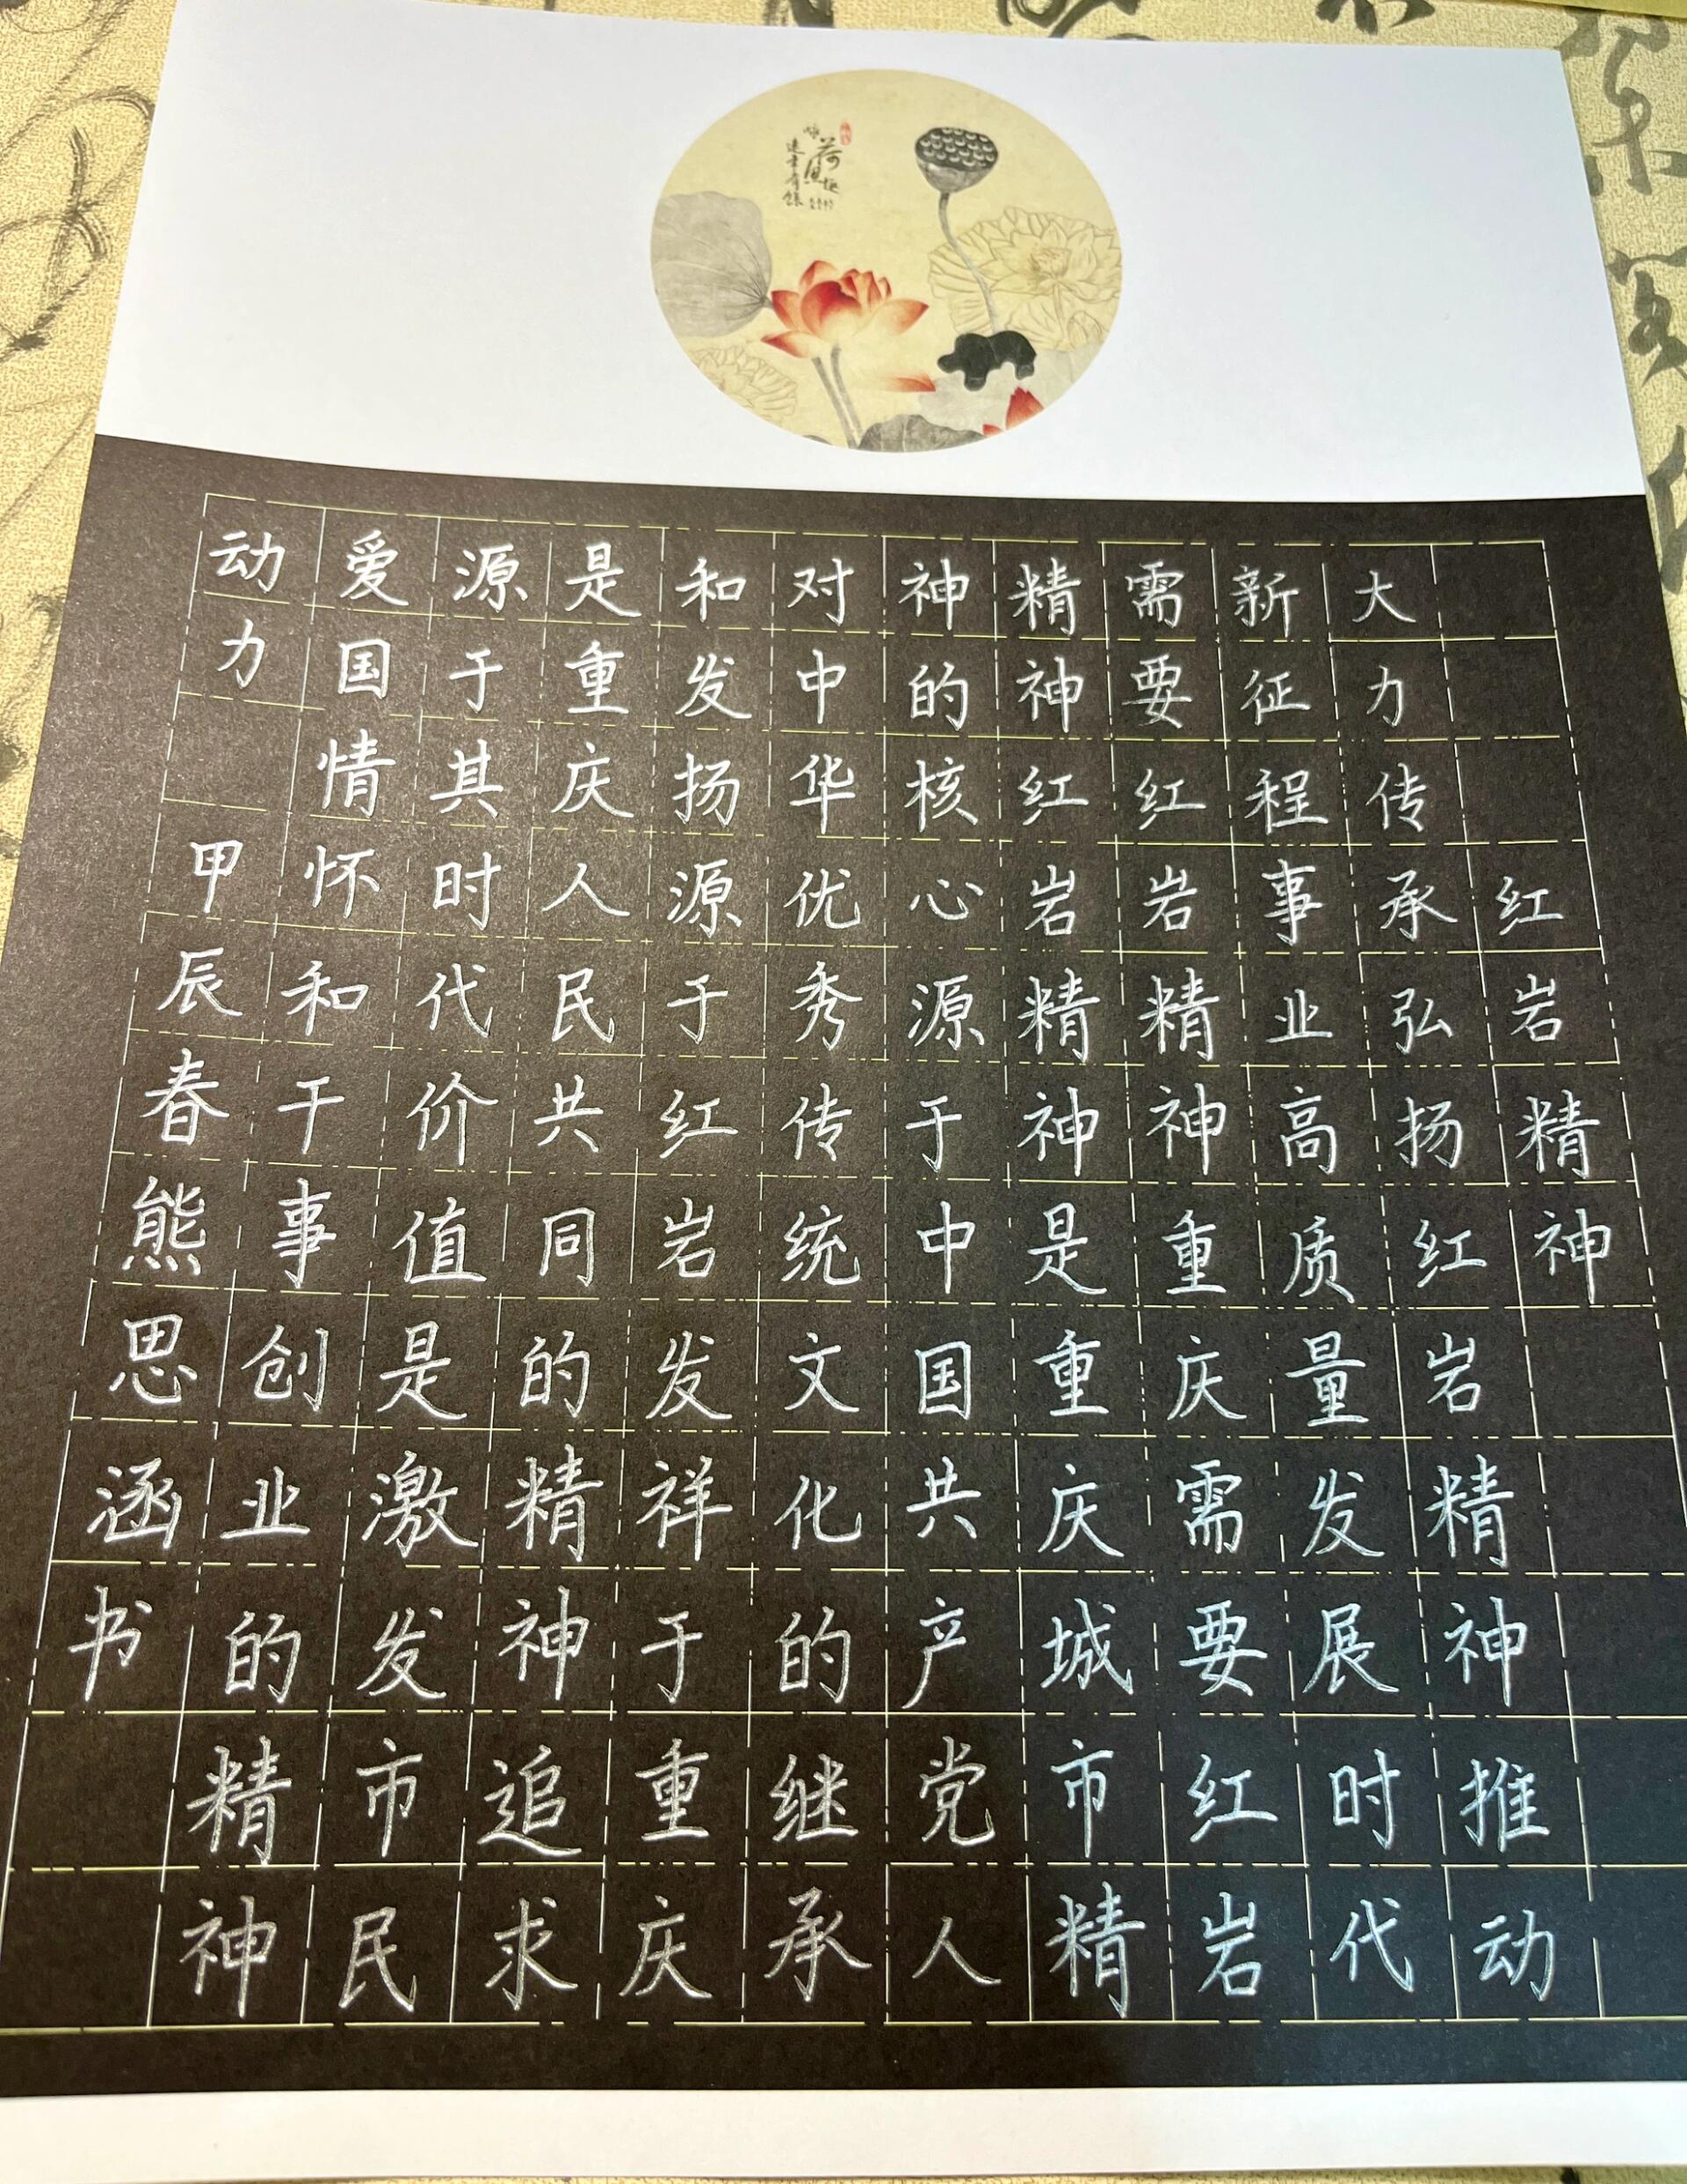 红岩精神
大力传承弘扬红岩精神推动
新征程事业高质量发展时代
需要红岩精神重庆需要红岩
精神红岩精神是重庆城市精
神的核心源于中国共产党人
对中华优秀传统文化的继承
和发扬源于红岩发祥于重庆
是重庆人民共同的精神追求
源于其时代价值是激发市民
爱国情怀和干事创业的精神
动力
甲辰春熊思涵书